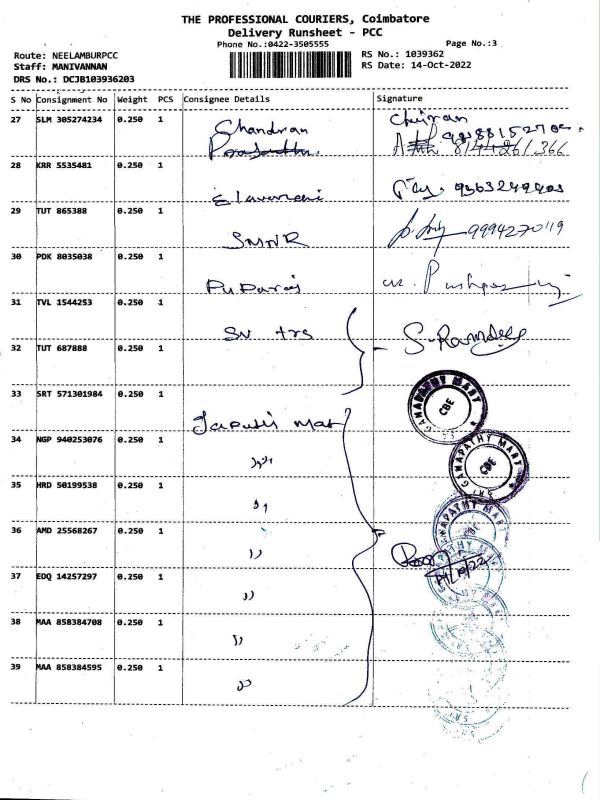 THE PROFESSIONAL COURIERS, Coimbatore
Delivery Runsheet - PCC
Phone No.:0422-3505555 Page No.:3
Route: NEELAMBURPCC RS No.: 1039362
Staff: MANIVANNAN RS Date: 14-Oct-2022
DRS No.: DCJB103936203
S No Consignment No Weight PCS Consignee Details Signature
27 SLM 305274234 0.250 1 Chandran
8144261366
28 KRR 5535481 0.250 1
29 TUT 865388 0.250 1 SMNR 9994270119
30 PDK 8035038 0.250 1
31 TVL 1544253 0.250 1 SV trs
32 TUT 687888 0.250 1
33 SRT 571301984 0.250 1 GANAPATHY MART CBE
34 NGP 940253076 0.250 1 " SRI GANAPATHY MART CBE
35 HRD 50199538 0.250 1 "
36 AMD 25568267 0.250 1 "
37 EDQ 14257297 0.250 1 " 14/10/22
38 MAA 858384708 0.250 1 "
39 MAA 858384595 0.250 1 "